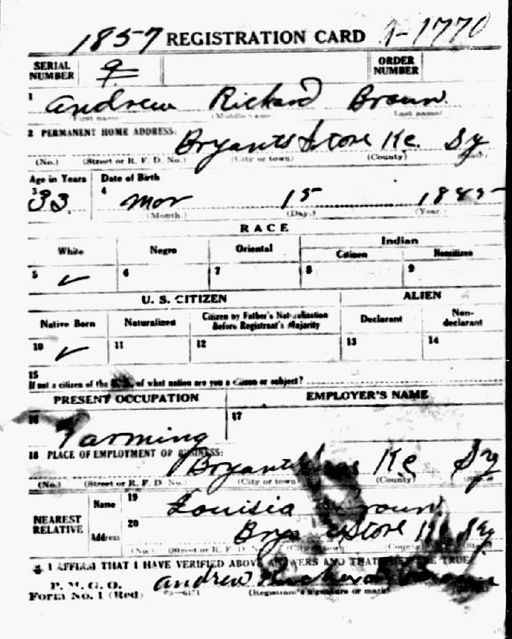 1857 REGISTRATION CARD A-1770
SERIAL NUMBER 9 ORDER NUMBER
1 Andrew Richard Brown
(First name) (Middle name) (Last name)
2 PERMANENT HOME ADDRESS: Bryants Store Ke. Ky
(No.) (Street or R. F. D. No.) (City or town) (County) (State)
Age in Years Date of Birth
3 33 4 Mar 15 1885
(Month.) (Day.) (Year.)
RACE
White Negro Oriental Indian
Citizen Noncitizen
5 ✓ 6 7 8 9
U. S. CITIZEN ALIEN
Native Born Naturalized Citizen by Father's Naturalization Before Registrant's Majority Declarant Non-declarant
10 ✓ 11 12 13 14
15
If not a citizen of the U.S. of what nation are you a citizen or subject?
PRESENT OCCUPATION EMPLOYER'S NAME
16 Farming 17
18 PLACE OF EMPLOYMENT OR BUSINESS:
Bryants Store Ke Ky
(No.) (Street or R. F. D. No.) (City or town) (County) (State)
NEAREST RELATIVE Name 19 Louisia Brown
Address 20 Store Ky
(No.) (Street or R. F. D. No.) (City or town)
I AFFIRM THAT I HAVE VERIFIED ABOVE ANSWERS AND THAT THEY ARE TRUE
P. M. G. O.
Form No. 1 (Red) Andrew Richard Brown
(Registrant's signature or mark)